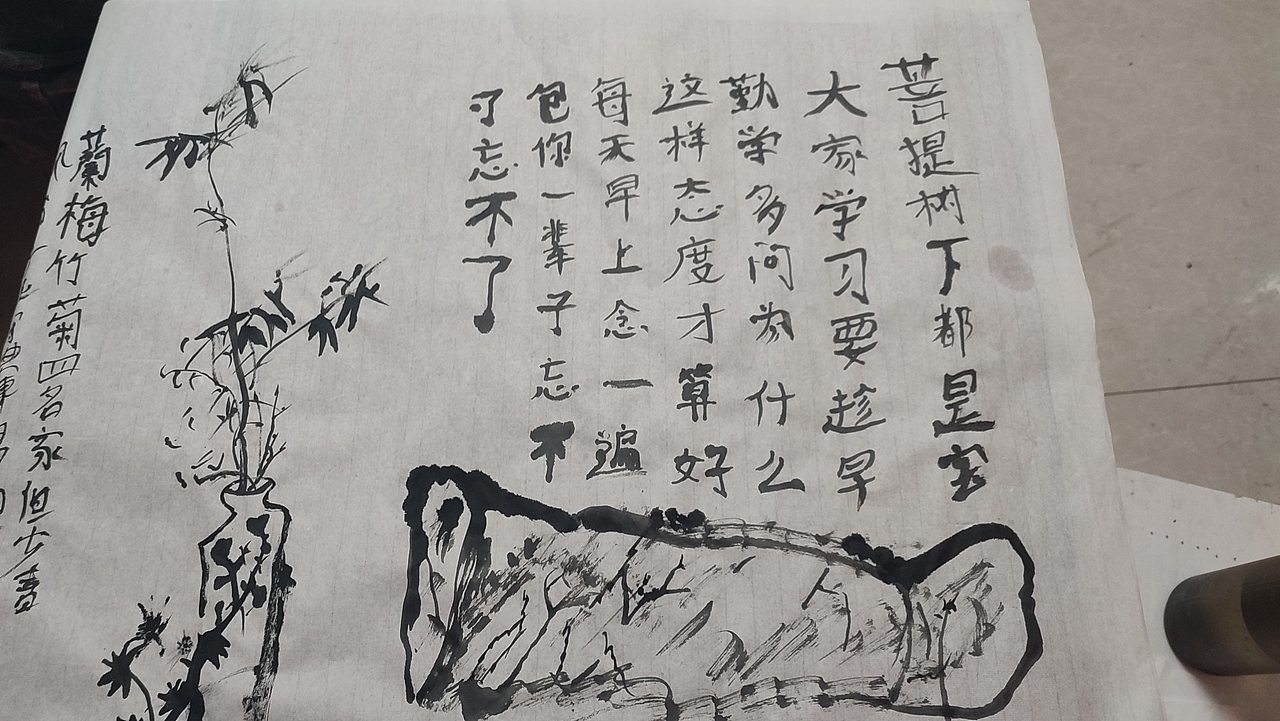 菩提树下都是宝
大家学习要趁早
勤学多问为什么
这样态度才算好
每天早上念一遍
包你一辈子忘不
了忘不了
蘭梅竹菊四名家但少春